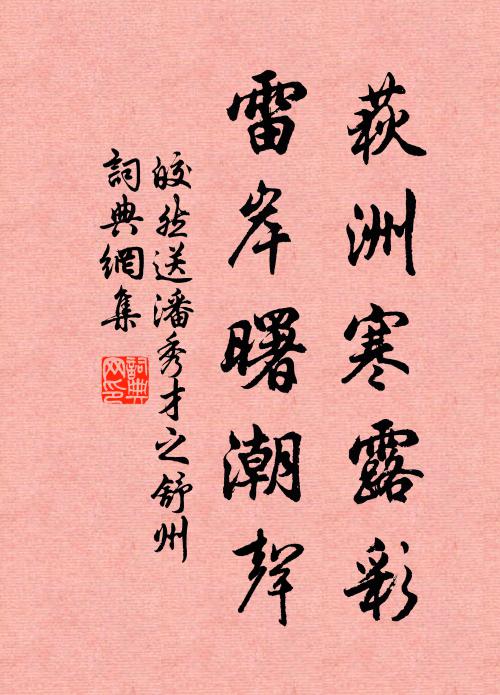 荻洲寒露彩
雷岸曙潮聲
皎然送潘秀才之舒州
詞典網集
詞典网印